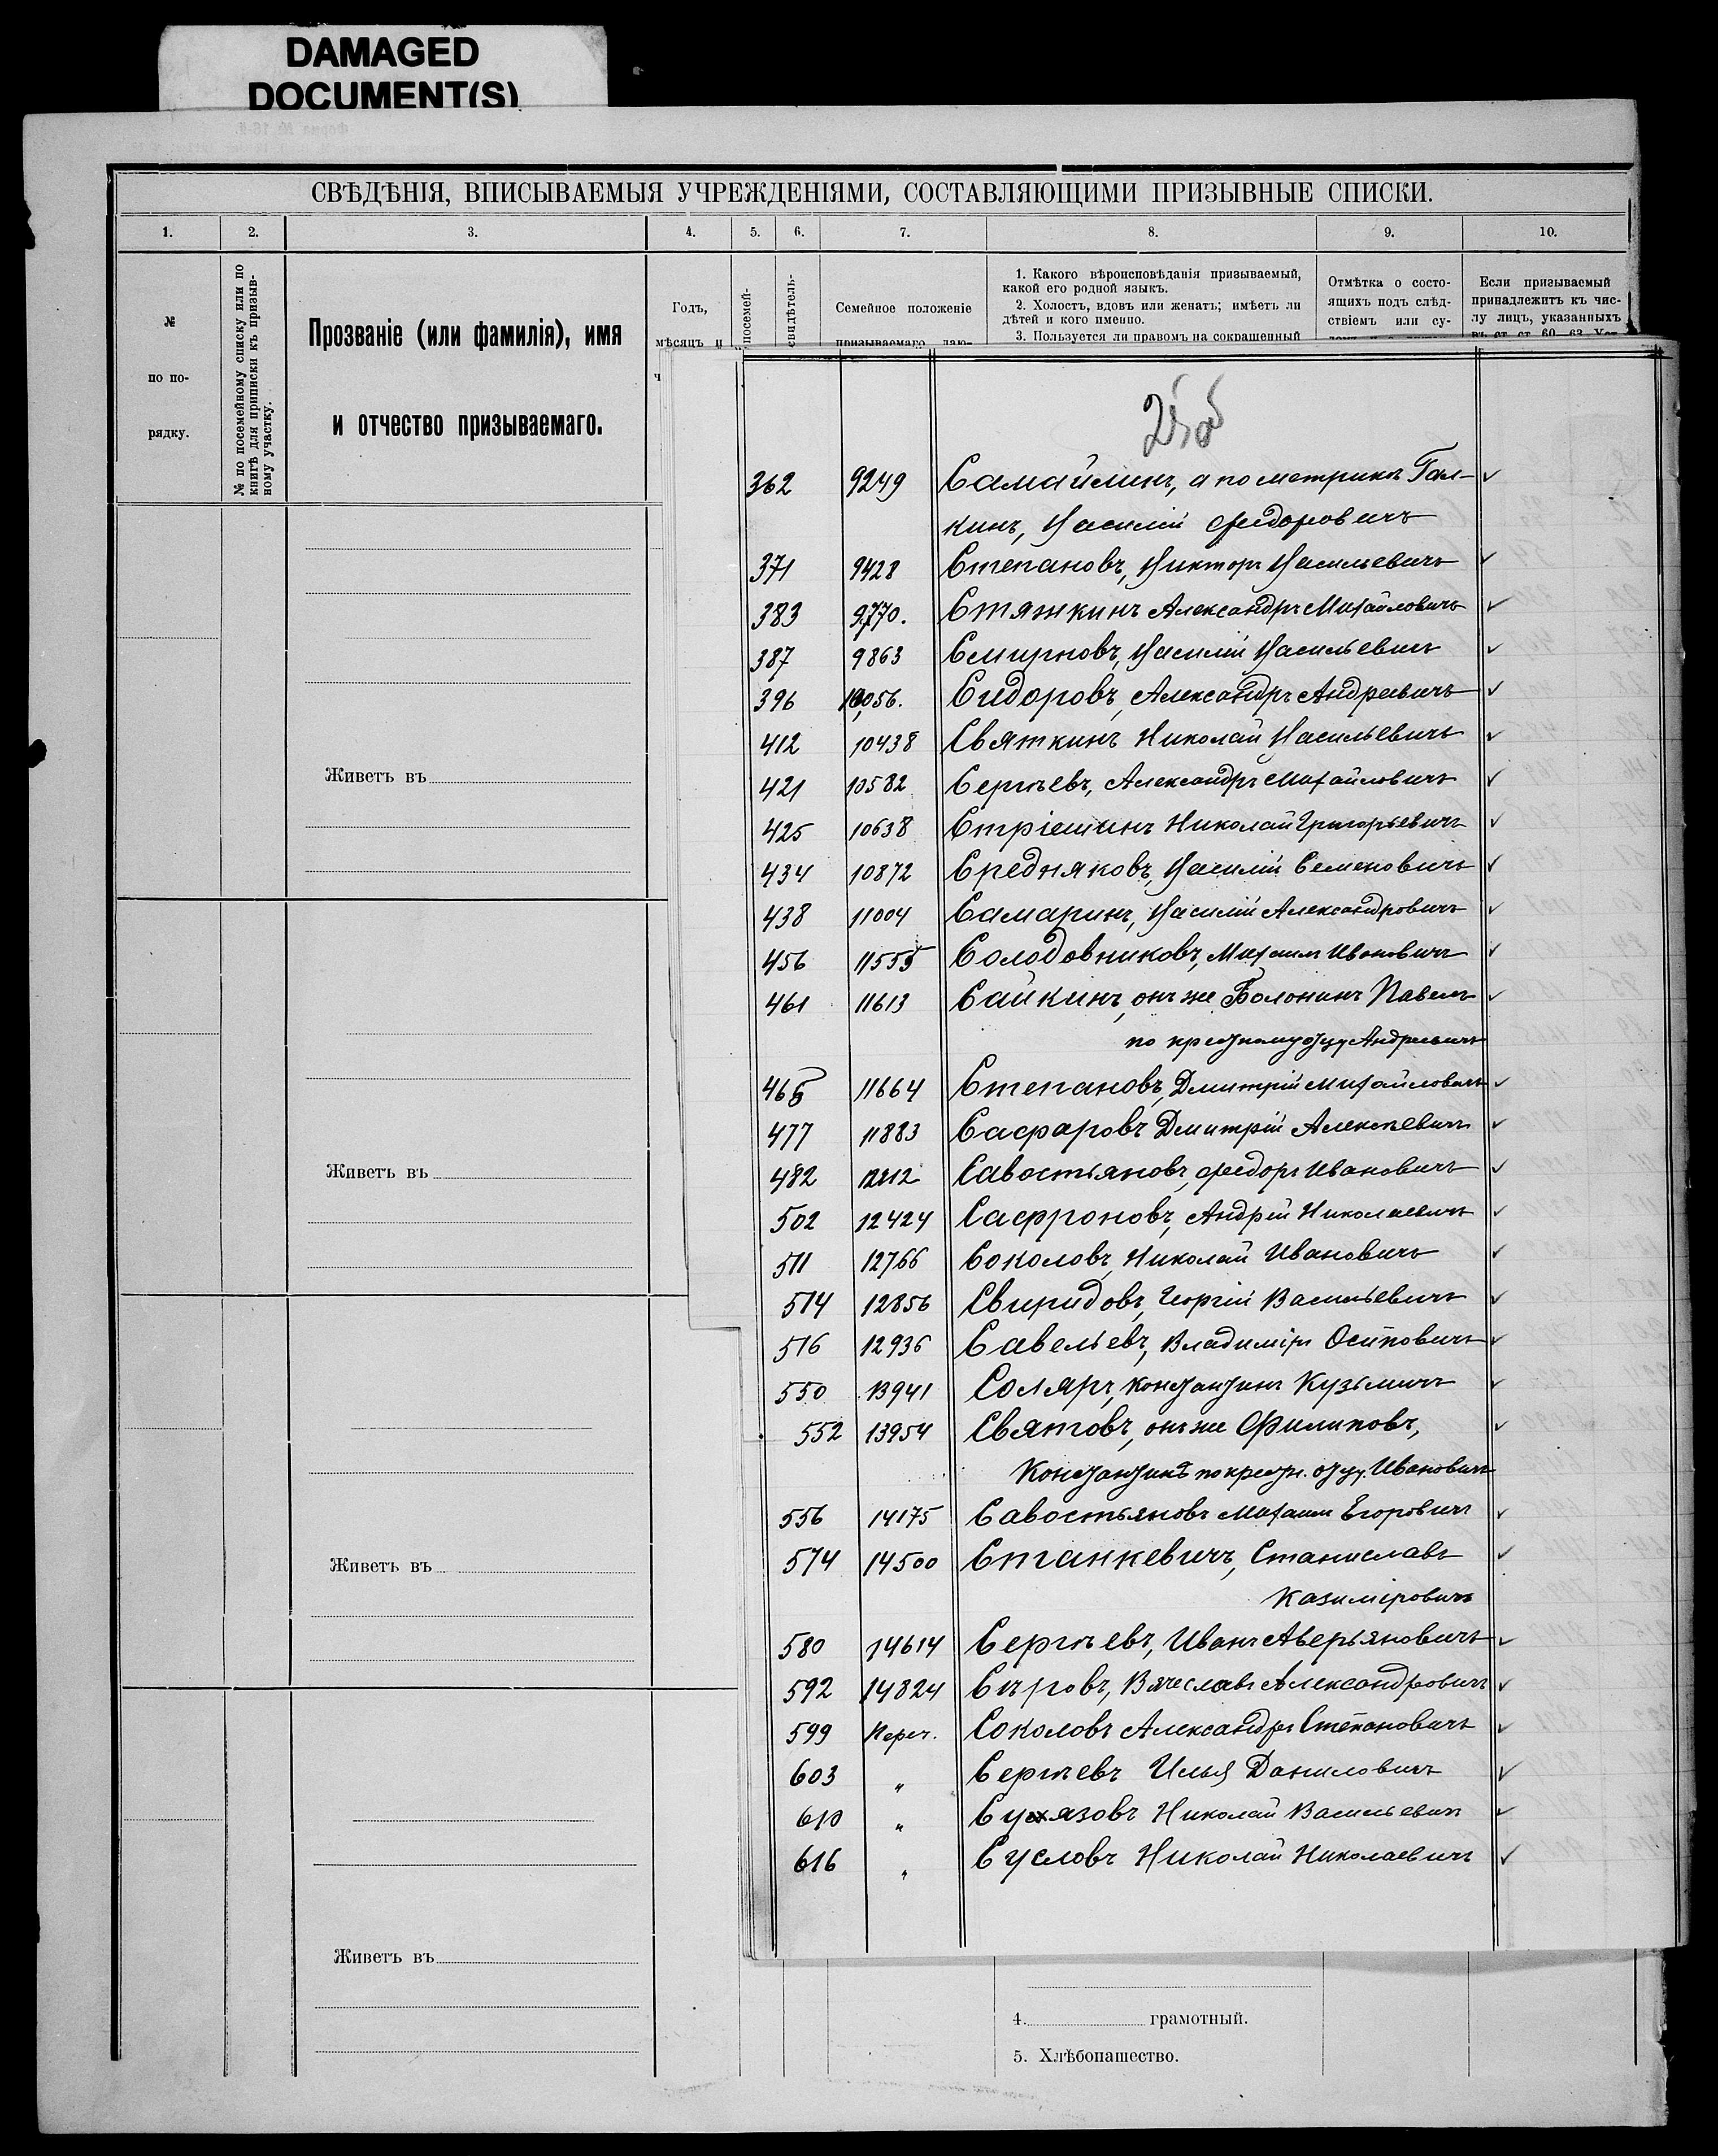 DAMAGED
DOCUMENT(S)
СВѢДѢНІЯ, ВПИСЫВАЕМЫЯ УЧРЕЖДЕНІЯМИ, СОСТАВЛЯЮЩИМИ ПРИЗЫВНЫЕ СПИСКИ.
1. 2. 3. 4. 5. 6. 7. 8. 9. 10.
№
по по-
рядку.
№ по посемейному списку или по
книгѣ для приписки къ призыв-
ному участку.
Прозваніе (или фамилія), имя
и отчество призываемаго.
Годъ,
мѣсяцъ и
ч
посемей-
свидѣтель-
Семейное положеніе
призываемаго, даю-
1. Какого вѣроисповѣданія призываемый,
какой его родной языкъ.
2. Холостъ, вдовъ или женатъ; имѣетъ ли
дѣтей и кого именно.
3. Пользуется ли правомъ на сокращенный
Отмѣтка о состо-
ящихъ подъ слѣд-
ствіемъ или су-
Если призываемый
принадлежитъ къ чис-
лу лицъ, указанныхъ
въ ст. ст. 60—63 Уст.
362 9249 Самайлинъ, а по метрикѣ Гал- ✓
кинъ, Василій Федоровичъ
371 9428 Степановъ, Викторъ Васильевичъ ✓
383 9770. Стяжкинъ Александръ Михайловичъ ✓
387 9863 Смирновъ, Василій Васильевичъ ✓
396 10056. Сидоровъ, Александръ Андреевичъ ✓
412 10438 Святкинъ Николай Васильевичъ ✓
421 10582 Сергѣевъ, Александръ Михайловичъ ✓
425 10638 Николай Григорьевичъ ✓
434 10872 Средняковъ, Василій Семеновичъ ✓
438 11004 Самаринъ, Василій Александровичъ ✓
456 11555 Солодовниковъ, Михаилъ Ивановичъ ✓
461 11613 Сайкинъ, онъ же Болонинъ Павелъ ✓
по крестному отцу Андреевичъ
466 11664 Степановъ, Дмитрій Михайловичъ ✓
477 11883 Сафаровъ Дмитрій Алексѣевичъ ✓
482 Савостьяновъ, Федоръ Ивановичъ ✓
502 12424 Сафроновъ, Андрей Николаевичъ ✓
511 12766 Соколовъ, Николай Ивановичъ ✓
514 12856 Свиридовъ, Георгій Васильевичъ ✓
516 12936 Савельевъ, Владиміръ Осиповичъ ✓
550 13941 Соляръ, Константинъ Кузьмичъ ✓
552 13954 Святовъ, онъ же Филиповъ, ✓
Константинъ по крестн. отцу. Ивановичъ
556 14175 Савостьяновъ Михаилъ Егоровичъ ✓
574 14500 Станкевичъ, Станиславъ ✓
Казиміровичъ
580 14614 Сергѣевъ, Иванъ Аверьяновичъ ✓
592 14824 Сѣровъ, Вячеславъ Александровичъ ✓
599 Переч. Соколовъ Александръ Степановичъ ✓
603 „ Сергѣевъ Илья Даниловичъ ✓
610 „ Николай Васильевичъ ✓
616 „ Сусловъ Николай Николаевичъ ✓
Живетъ въ
Живетъ въ
Живетъ въ
Живетъ въ
4. грамотный.
5. Хлѣбопашество.